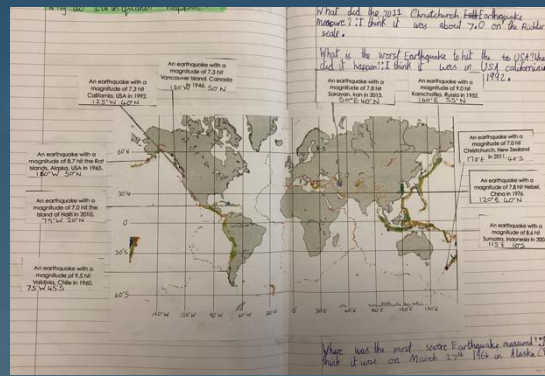 Why do Earthquakes happen?
What did the 2011 Christchurch Earthquake
measure? I think it was about 7.0 on the Richter
scale.
What is the worst Earthquake to hit the to USA? When
did it happen? I think it was in USA california
1992.
An earthquake with a
magnitude of 7.3 hit
California, USA in 1992.
125°W 40°N
An earthquake with a
magnitude of 7.3 hit
Vancouver Island, Canada
in 1946.
130°W 50°N
An earthquake with a
magnitude of 7.8 hit
Saravan, Iran in 2013.
50°E 40°N
An earthquake with a
magnitude of 9.0 hit
Kamchatka, Russia in 1952.
160°E 55°N
An earthquake with a
magnitude of 8.7 hit the Rat
Islands, Alaska, USA in 1965.
180°W 50°N
An earthquake with a
magnitude of 7.0 hit the
island of Haiti in 2010.
75°W 20°N
An earthquake with a
magnitude of 9.5 hit
Valdivia, Chile in 1960.
75°W 45°S
An earthquake with a
magnitude of 7.0 hit
Christchurch, New Zealand
in 2011.
170°E 40°S
An earthquake with a
magnitude of 7.8 hit Hebei,
China in 1976.
120°E 40°N
An earthquake with a
magnitude of 8.6 hit
Sumatra, Indonesia in 200
115°E 10°S
60°N
30°N
0
30°S
60°S
Where was the most severe Earthquake measured? I
think it was on March 27th 1964 in Alaska